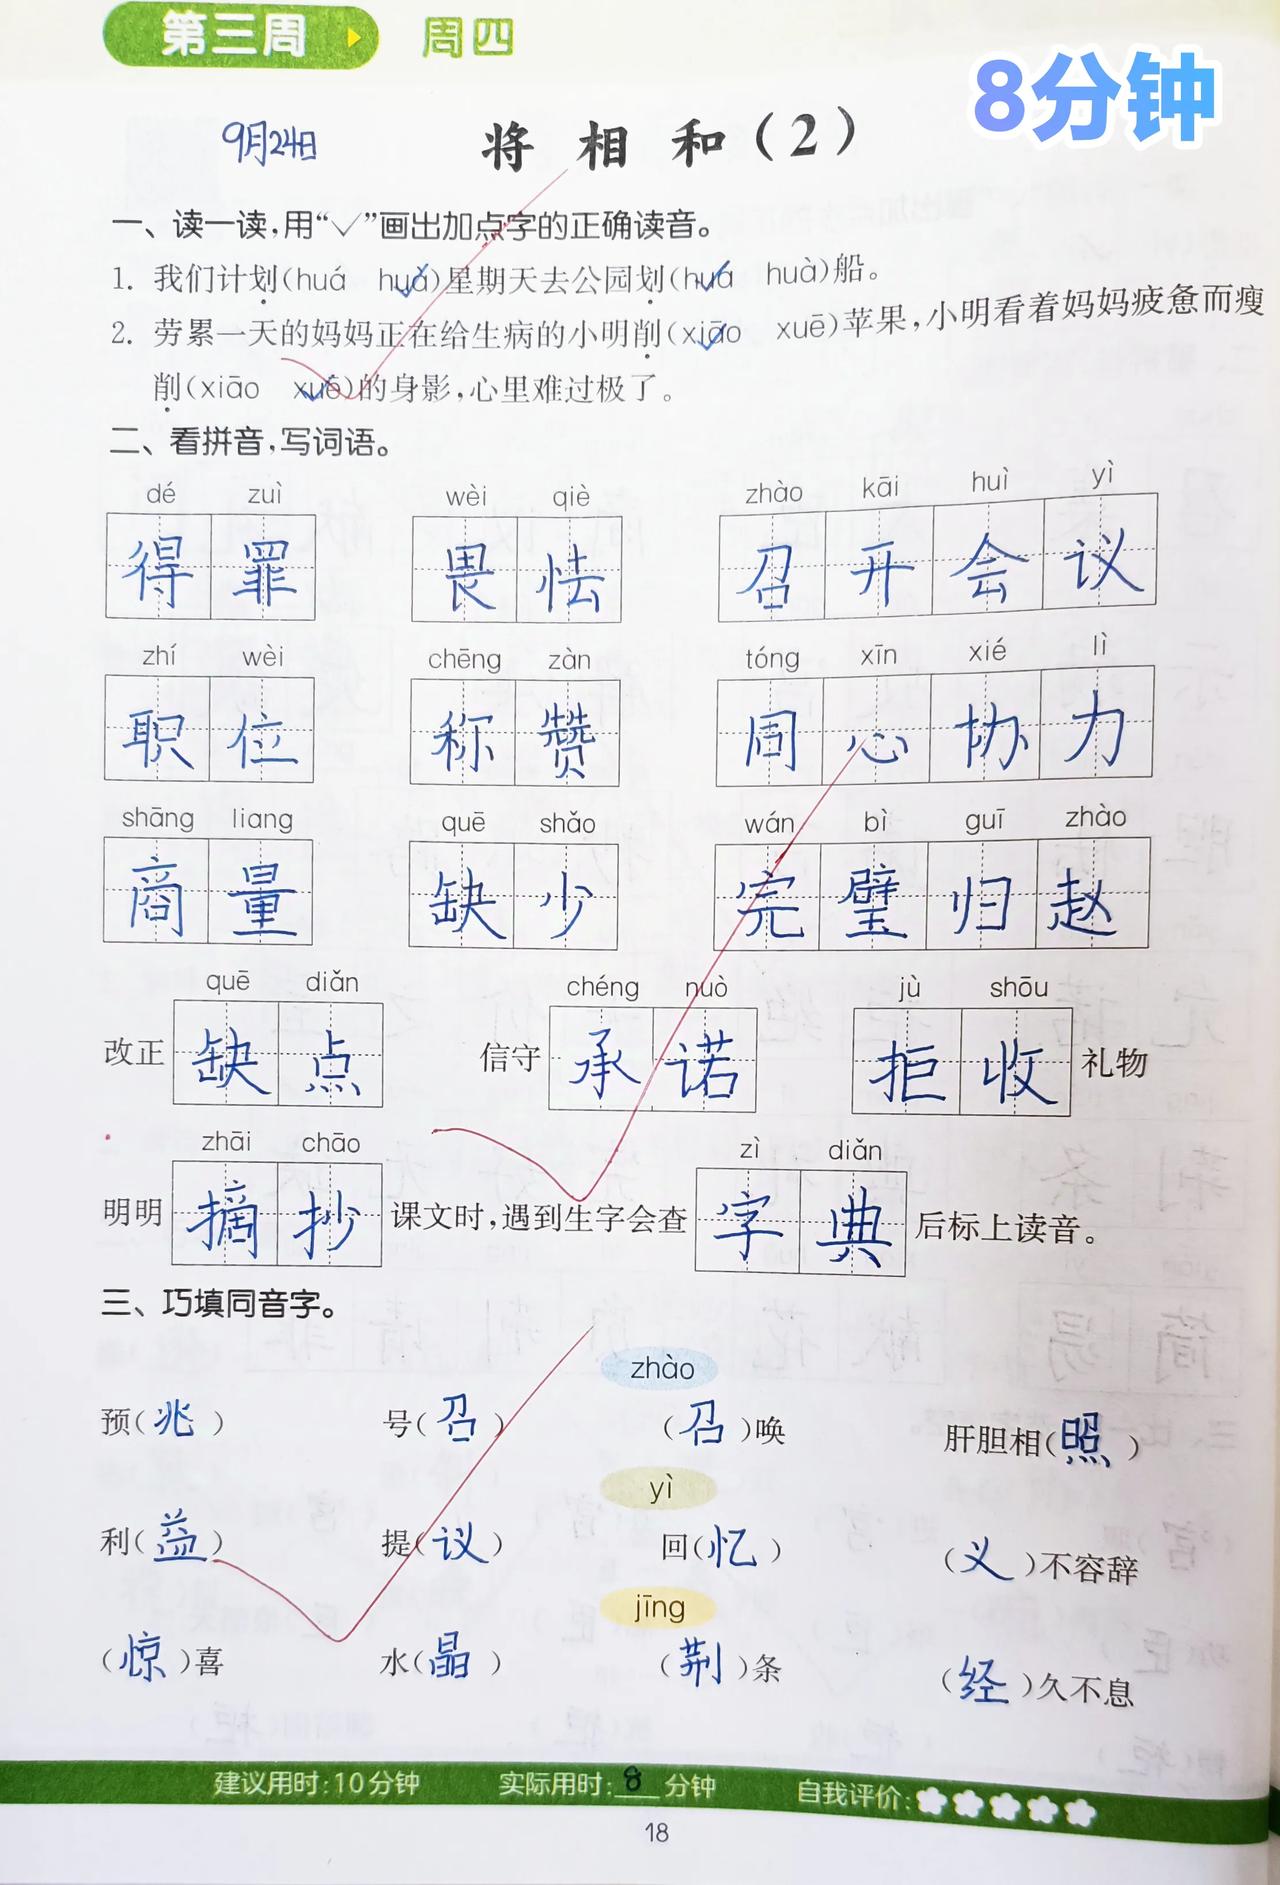 第三周 周四
8分钟
9月24日 将相和(2)
一、读一读,用“✓”画出加点字的正确读音。
1. 我们计划(huá huà)星期天去公园划(huá huà)船。
2. 劳累一天的妈妈正在给生病的小明削(xiāo xuē)苹果,小明看着妈妈疲惫而瘦
削(xiāo xuē)的身影,心里难过极了。
二、看拼音,写词语。
dé zuì wèi qiè zhào kāi huì yì
得罪 畏怯 召开会议
zhí wèi chēng zàn tóng xīn xié lì
职位 称赞 同心协力
shāng liang quē shǎo wán bì guī zhào
商量 缺少 完璧归赵
quē diǎn chéng nuò jù shōu
改正 缺点 信守 承诺 拒收 礼物
zhāi chāo zì diǎn
明明 摘抄 课文时,遇到生字会查 字典 后标上读音。
三、巧填同音字。
zhào
预(兆) 号(召) (召)唤 肝胆相(照)
yì
利(益) 提(议) 回(忆) (义)不容辞
jīng
(惊)喜 水(晶) (荆)条 (经)久不息
建议用时:10分钟 实际用时:8分钟 自我评价:
18